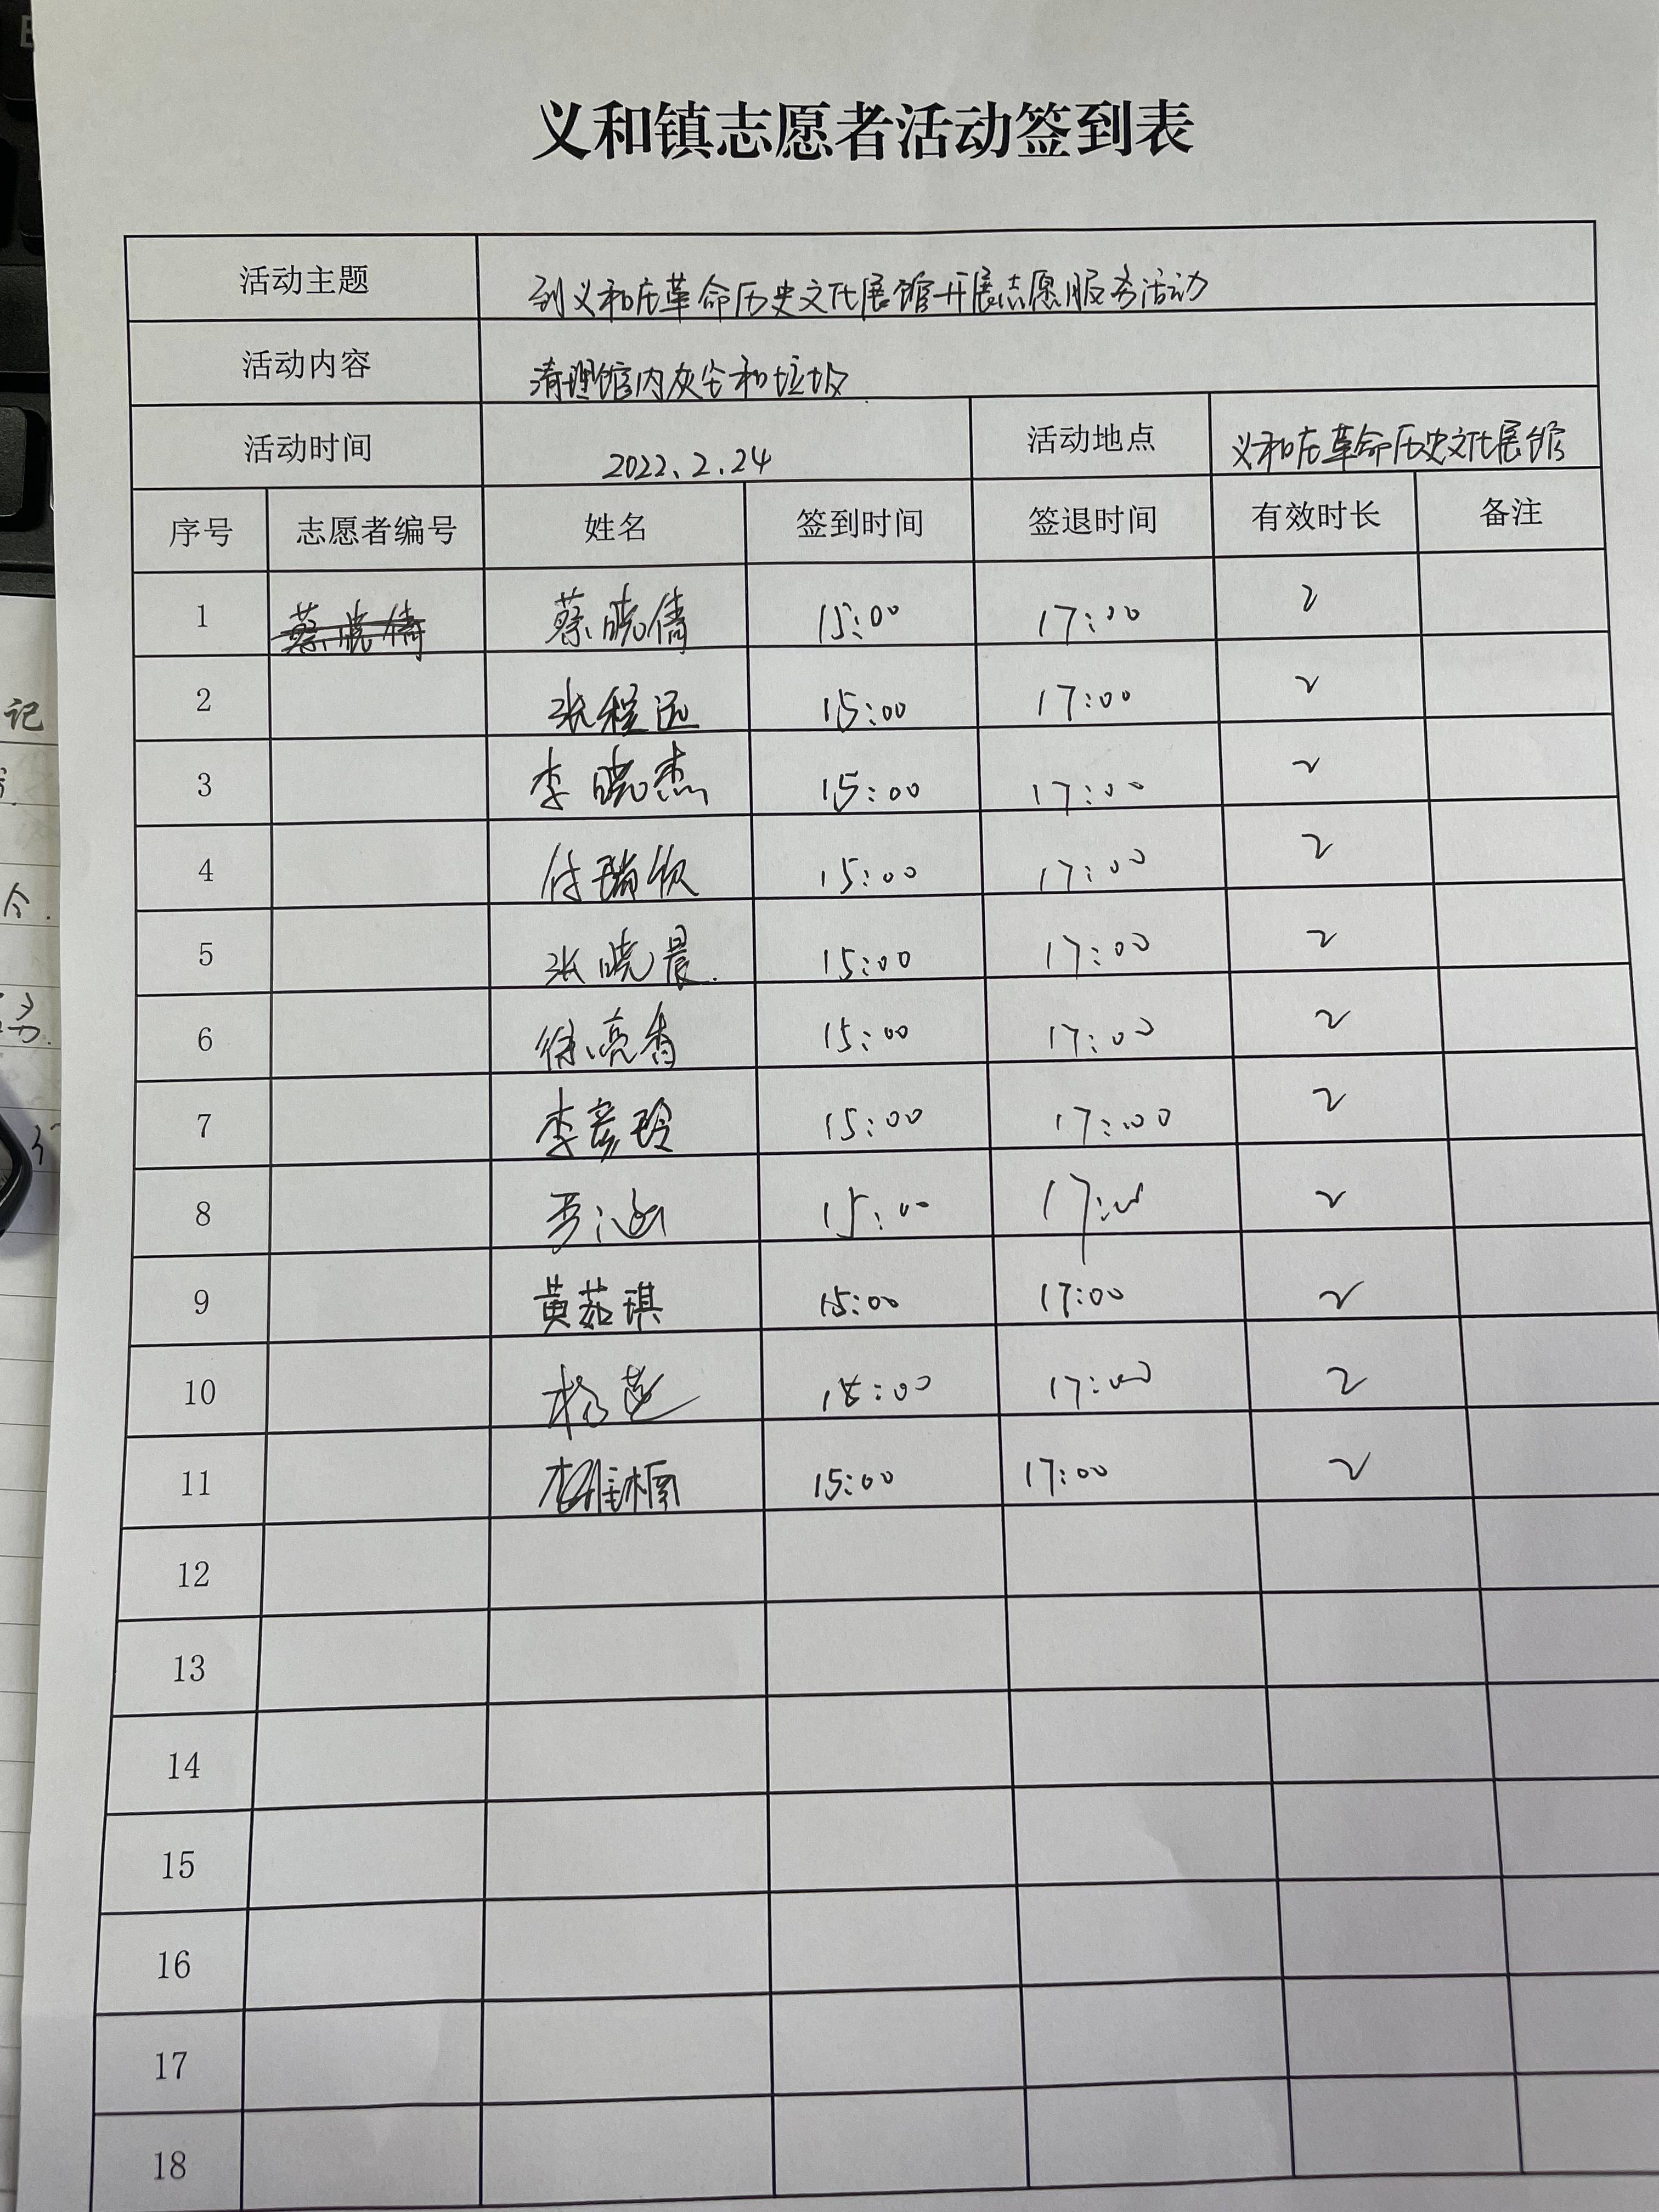 义和镇志愿者活动签到表
活动主题 到义和庄革命历史文化展馆开展志愿服务活动
活动内容 清理馆内灰尘和垃圾
活动时间 2022.2.24 活动地点 义和庄革命历史文化展馆
序号 志愿者编号 姓名 签到时间 签退时间 有效时长 备注
1 蔡晓倩 蔡晓倩 15:00 17:00 2
2 张程远 15:00 17:00 2
3 李晓杰 15:00 17:00 2
4 付瑞钦 15:00 17:00 2
5 张晓晨 15:00 17:00 2
6 徐亮香 15:00 17:00 2
7 李彦玲 15:00 17:00 2
8 15:00 17:00 2
9 黄茹琪 15:00 17:00 2
10 15:00 17:00 2
11 15:00 17:00 2
12
13
14
15
16
17
18
记